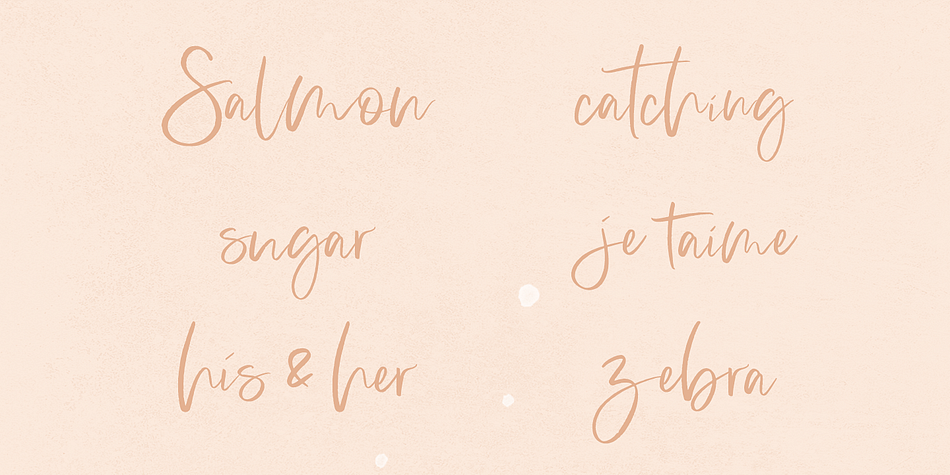 Salmon
catching
sugar
je taime
his & her
zebra